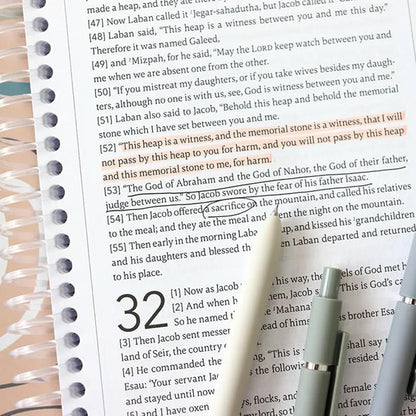 made a heap, and they ate there by
[47] Now Laban called it ʲJegar-sahadutha, but Jacob called it
[48] Laban said, "This heap is a witness between you and me this day."
Therefore it was named Galeed,
[49] and ʲMizpah, for he said, "May the LORD keep watch between you and
me when we are absent one from the other.
[50] "If you mistreat my daughters, or if you take wives besides my daugh-
ters, although no one is with us, see, God is witness between you and me."
[51] Laban also said to Jacob, "Behold this heap and behold the memorial
stone which I have set between you and me.
[52] "This heap is a witness, and the memorial stone is a witness, that I will
not pass by this heap to you for harm, and you will not pass by this heap
and this memorial stone to me, for harm.
[53] "The God of Abraham and the God of Nahor, the God of their father,
judge between us." So Jacob swore by the fear of his father Isaac.
[54] Then Jacob offered a sacrifice on the mountain, and called his relatives
to the meal; and they ate the meal and spent the night on the mountain.
[55] Then early in the morning Laban up, and kissed his grandchildren
and his daughters and blessed Then Laban departed and returned
to his place.
32
[1] Now as Jacob his way, the of God met
[2] And when he them, Jacob "This is God's
So he named
[3] Then Jacob sent messengers ahead of himself his brother Esau
land of Seir, the country of
[4] He commanded them saying, "This shall say
Esau: 'Your servant Jacob the
and stayed until now
[5] and I have oxen flocks,
my lord,